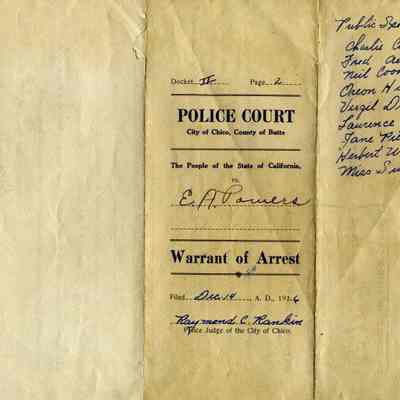 Docket II Page 2
POLICE COURT
City of Chico, County of Butte
The People of the State of California,
vs.
E. A. Powers
Warrant of Arrest
Filed Dec. 14 A. D., 19
Raymond C. Rankin
Police Judge of the City of Chico.
Public
Charlie
Fred
Neil
Oreon
Vergil
Laurence
Jane
Herbert
Miss